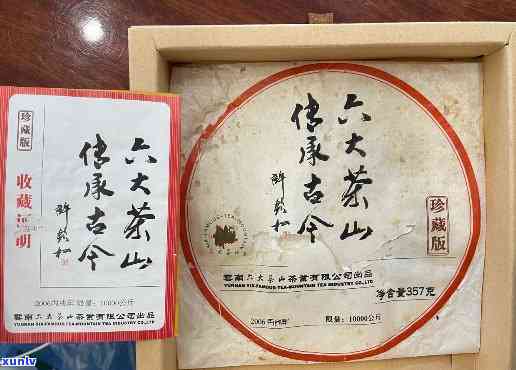 珍藏版
收藏证明
六大茶山
传承古今
2006丙戌年 限量：10000公斤
雲南六大茶山茶業有限公司出品
YUNNAN SIX-FAMOUS-TEA-MOUNTAIN TEA INDUSTRY CO.,LTD
六大茶山
传承古今
珍藏版
雲南六大茶山茶業有限公司出品
YUNNAN SIX-FAMOUS-TEA-MOUNTAIN TEA INDUSTRY CO.,LTD
净含量357克
2006 丙戌年
限量：10000公斤
xunlv